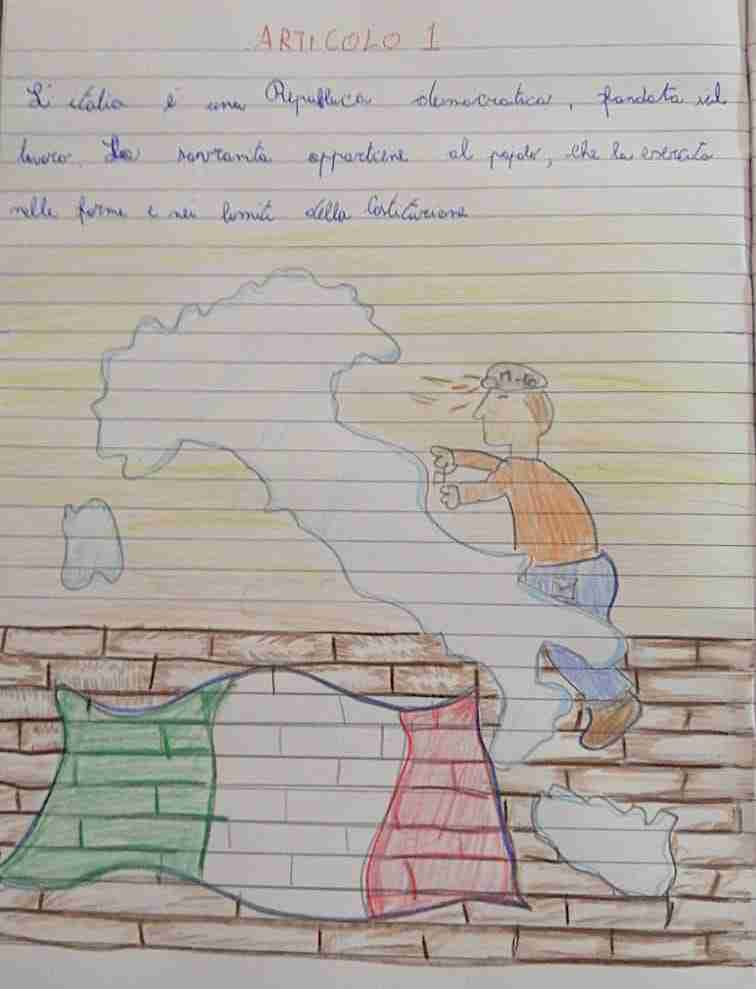 ARTICOLO 1
L'italia è una Repubblica democratica, fondata sul
lavoro. La sovranità appartiene al popolo, che la esercita
nelle forme e nei limiti della Costituzione